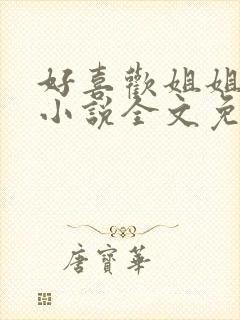 好喜歡姐姐
小說全文免
唐寶華